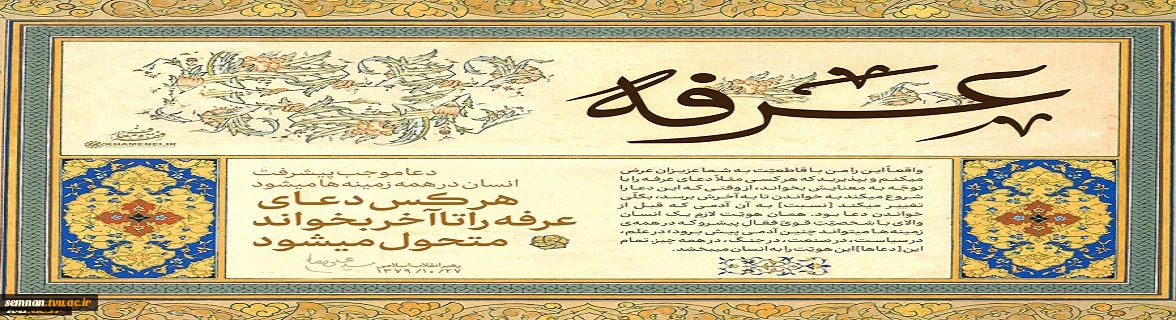 عرفه
KHAMENEI.IR
واقعاً این را من با قاطعیّت به شما عزیزان عرض
میکنم و بپذیرید که هر کسی مثلاً دعای عرفه را با
توجّه به معنایش بخواند، از وقتی که این دعا را
شروع میکند به خواندن تا به آخرش برسد، بکلّی
تغییر میکند [نسبت] به آن آدمی که قبل از
خواندن دعا بود. همان هویّت لازم یک انسان
والا و باشرف و قوی و فعّال و پیشرو که در همه‌ی
زمینه‌ها میتواند چنین آدمی پیش برود؛ در علم،
در سیاست، در صنعت، در جنگ، در همه چیز؛ تمام
این [دعاها] این هویّت را به انسان میبخشد.
دعا موجب پیشرفت
انسان در همه زمینه‌ها میشود
هر کس دعای
عرفه را تا آخر بخواند
متحول میشود
رهبر انقلاب اسلامی
۱۳۷۹/۱۰/۲۷
semnan.tvu.ac.ir